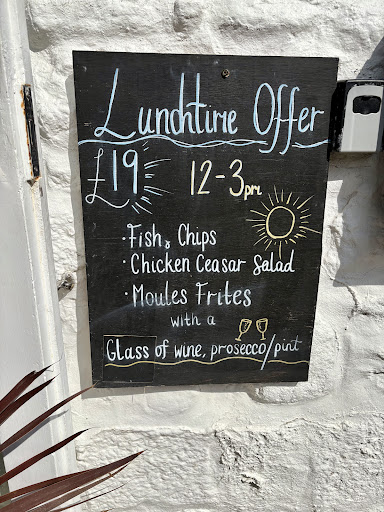 Lunchtime Offer
£19 12-3pm
· Fish & Chips
· Chicken Ceasar Salad
· Moules Frites
with a
Glass of wine, prosecco/pint